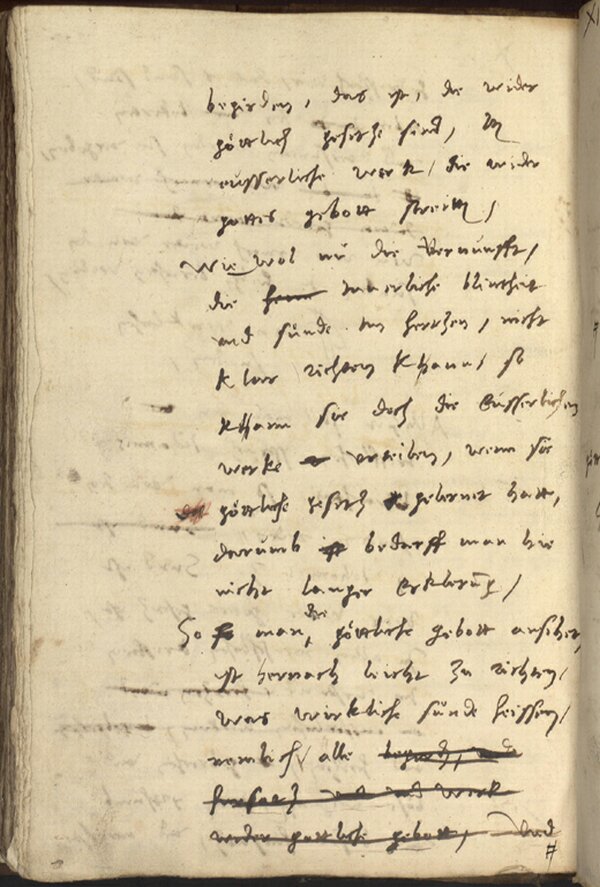 begirden, das ist, die wider
göttlich gesetze sind,
eusserliche werk / die wider
gottes gebott streitt /
Wie wol nū die Vernunfft /
die innerliche blintheit
und sünde im hertzen / nicht
klar richten khann / so
khann sie doch die Eusserlichen
werke urteilen, wenn sie
göttliche gesetz gelernet hatt,
darumb bedarff man hie
nicht langer Erklerūg /
So man die göttliche gebott ansihet,
ist hernach leicht zu richten /
was wirkliche sünde heissen /
nemlich / alle begird, und
fursatz und werk
wider gottliche gebott, Und